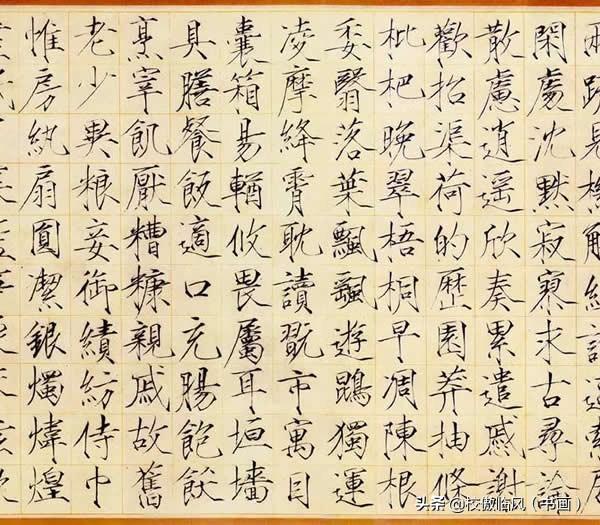 閑處沈默寂寥求古尋論
散慮逍遙欣奏累遣戚謝
歡招渠荷的歷園莽抽條
枇杷晚翠梧桐早凋陳根
委翳落葉飄颻遊鵾獨運
凌摩絳霄耽讀翫市寓目
囊箱易輶攸畏屬耳垣墻
具膳餐飯適口充腸飽飫
烹宰飢厭糟糠親戚故舊
老少異粮妾御績紡侍巾
帷房紈扇圓潔銀燭煒煌
头条 @校傲临风（书画）